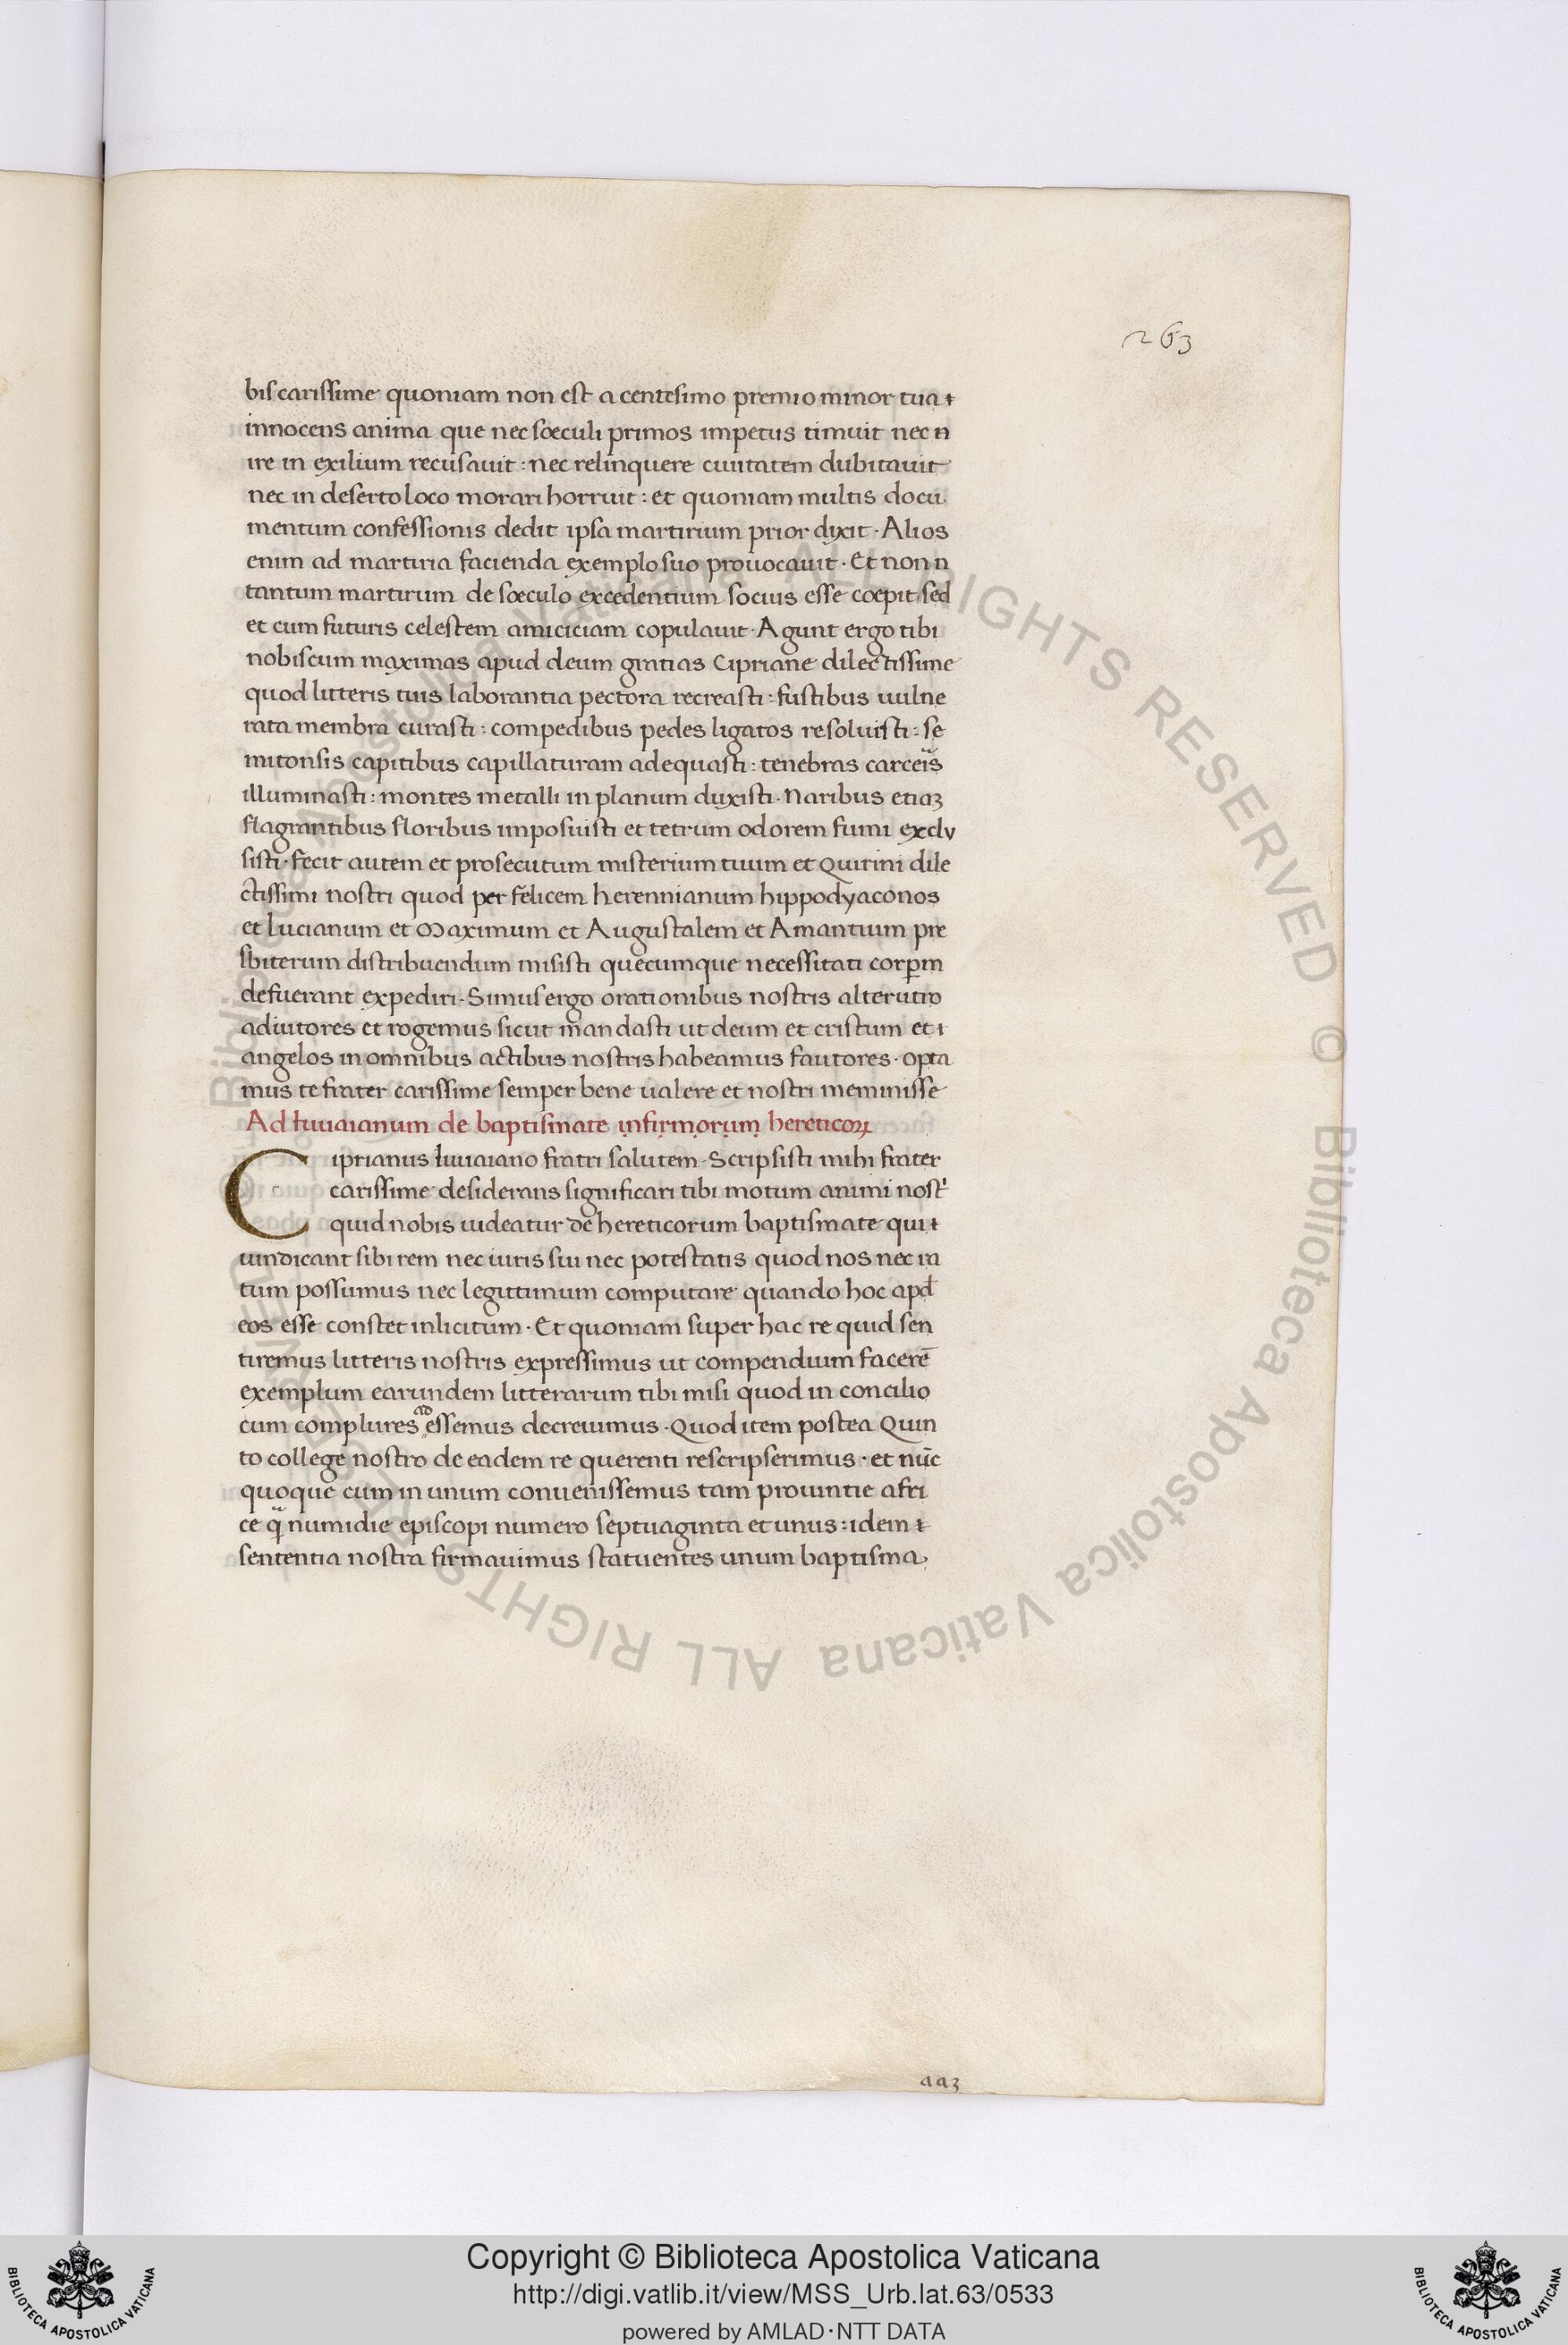 263
bis carissime quoniam non est a centesimo premio minor tua
innocens anima que nec sœculi primos impetus timuit nec n
ire in exilium recusauit : nec relinquere ciuitatem dubitauit
nec in deserto loco morari horruit : et quoniam multis docu
mentum confessionis dedit ipsa martirium prior dyxit · Alios
enim ad martiria facienda exemplo suo prouocauit · Et non n
tantum martirum de sœculo excedentium socius esse coepit sed
et cum futuris celestem amiciciam copulauit · Agunt ergo tibi
nobiscum maximas apud deum gratias Cipriane dilectissime
quod litteris tuis laborantia pectora recreasti : fustibus uulne
rata membra curasti : compedibus pedes ligatos resoluisti : se
mitonsis capitibus capillaturam adequasti : tenebras carceis
illuminasti : montes metalli in planum duxisti · Naribus etiaꝫ
flagrantibus floribus imposuisti et tetrum odorem fumi exclv
sisti · fecit autem et prosecutum misterium tuum et Quirini dile
ctissimi nostri quod per felicem herennianum hippodyaconos
et lucianum et Maximum et Augustalem et Amantium pre
sbiterum distribuendum misisti quecumque necessitati corpꝝm
defuerant expediri · Simus ergo orationibus nostris alterutro
adiutores et rogemus sicut mandasti ut deum et cristum et
angelos in omnibus actibus nostris habeamus fautores · opta
mus te frater carissime semper bene ualere et nostri meminisse
Ad Iuuaianum de baptismate infirmorum hereticoꝝ
Ciprianus Iuuaiano fratri salutem · Scripsisti mihi frater
carissime desiderans significari tibi motum animi nost'
quid nobis uideatur de hereticorum baptismate qui
uindicant sibi rem nec iuris sui nec potestatis quod nos nec ra
tum possumus nec legittimum computare quando hoc apđ
eos esse constet inlicitum · Et quoniam super hac re quid sen
tiremus litteris nostris expressimus ut compendium facerē
exemplum earundem litterarum tibi misi quod in concilio
cum complures adessemus decreuimus · Quod item postea Quin
to college nostro de eadem re querenti rescripserimus · et nūc
quoque cum in unum conuenissemus tam prouintie afri
ce q̃ numidie episcopi numero septuaginta et unus : idem
sententia nostra firmauimus statuentes unum baptisma
aa3
Biblioteca Apostolica Vaticana ALL RIGHTS RESERVED ©
Copyright © Biblioteca Apostolica Vaticana
http://digi.vatlib.it/view/MSS_Urb.lat.63/0533
powered by AMLAD·NTT DATA
BIBLIOTECA APOSTOLICA VATICANA
BIBLIOTECA APOSTOLICA VATICANA